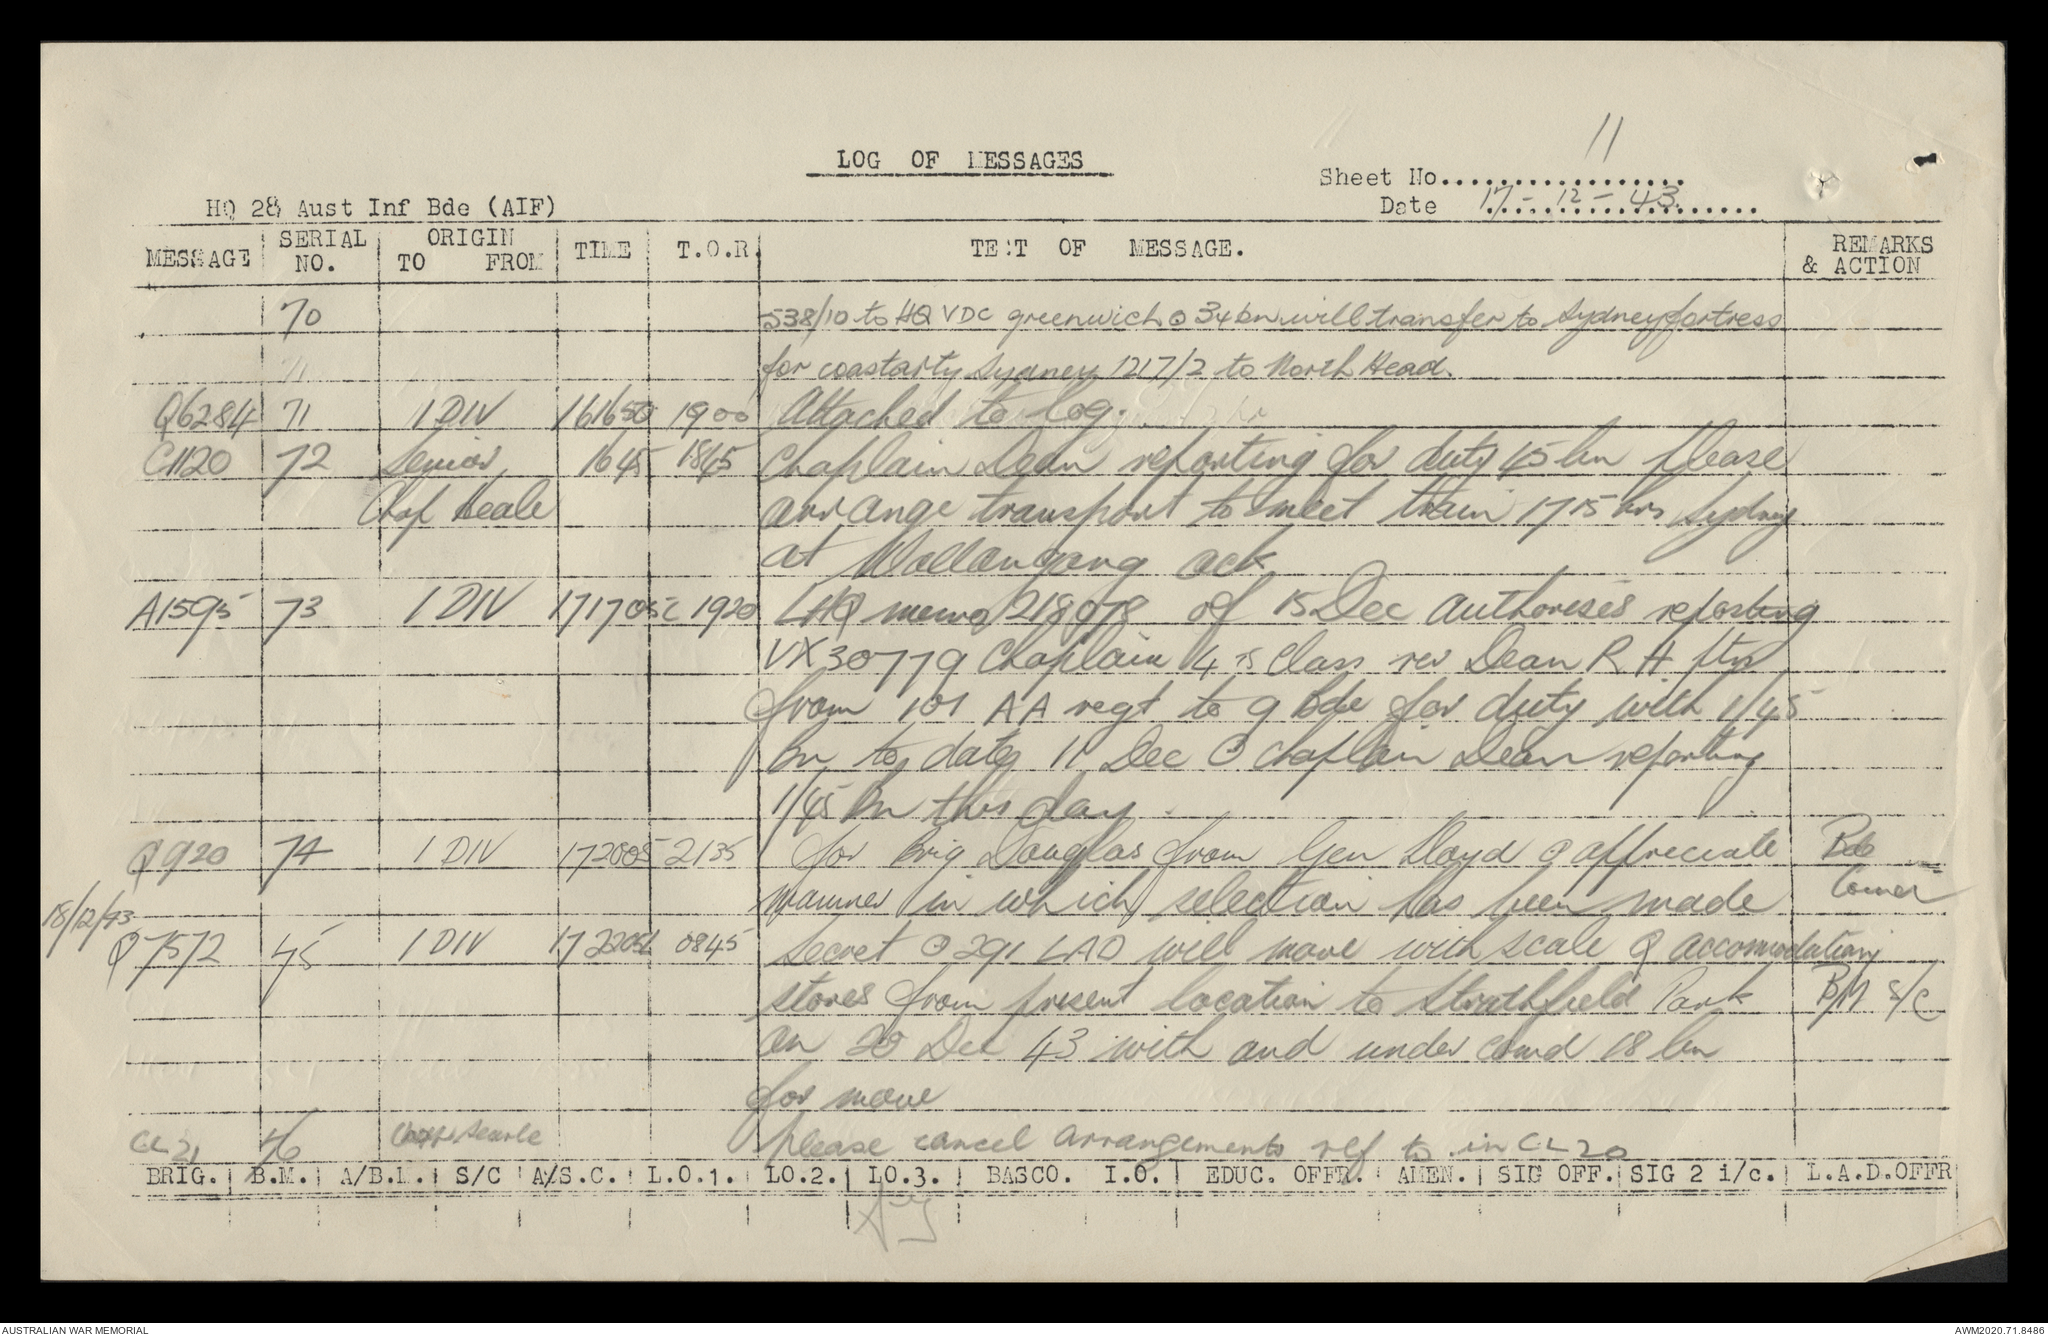 11
LOG OF MESSAGES
Sheet No..................
HQ 28 Aust Inf Bde (AIF)
Date 17-12-43
MESSAGE SERIAL NO. ORIGIN TO FROM TIME T.O.R. TEXT OF MESSAGE. REMARKS & ACTION
70 538/10 to HQ VDC greenwich @ 34 bn will transfer to Sydney fortress
for coastarty Sydney 1217/2 to North Head.
Q6284 71 1 DIV 161650 1900 Attached to log.
C1120 72 Senior 1645 1845 Chaplain Dean reporting for duty 45 bn please
Chap arrange transport to meet train 1715 hrs Sydney
at Wollongong ack
A1595 73 1 DIV 171705L 1920 LHQ memo 218078 of 15 Dec authorises reposting
VX30779 Chaplain 4 TH Class rev Dean R A
from 101 AA regt to 9 Bde for duty with 1/45
Bn to date 11 Dec @ Chaplain Dean reporting
1/45 Bn this day.
Q920 74 1 DIV 172005 2135 for Brig Douglas from Gen Lloyd @ appreciate Bde
manner in which selection has been made Comd
18/12/43
Q7572 75 1 DIV 172205L 0845 Secret @ 291 LAD will move with scale Q accommodation
stores from present location to Strathfield Park BM S/C
on 20 Dec 43 with and under comd 18 bn
for move
CL21 76 Searle please cancel arrangements ref to in CL20
BRIG. B.M. A/B.M. S/C A/S.C. L.O.1. LO.2. LO.3. BASCO. I.O. EDUC. OFFR. AMEN. SIG OFF. SIG 2 i/c. L.A.D.OFFR
AUSTRALIAN WAR MEMORIAL
AWM2020.71.8486